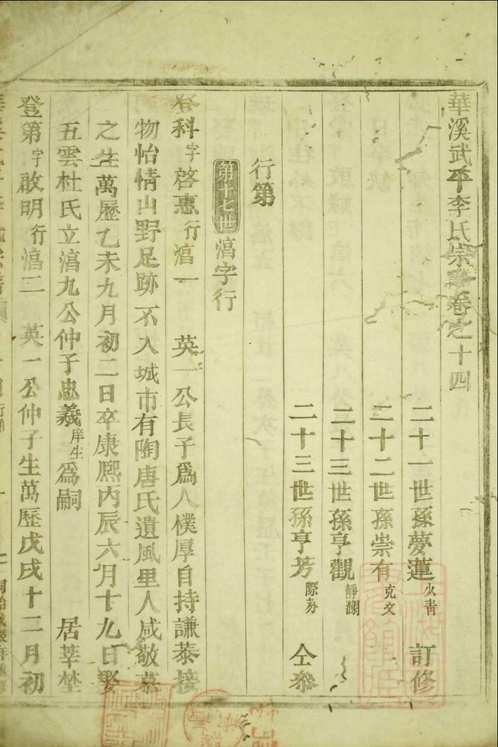 華溪武平李氏宗譜卷之十四
二十一世孫夢蓮 訂修
二十二世孫崇有克文
二十三世孫亨觀靜瀾
二十三世孫亨芳 仝叅
行第
第十七世 滈字行
登科字啓惠行滈一 英一公長子爲人樸厚自持謙恭接
物怡情山野足跡不入城市有陶唐氏遺風里人咸敬慕
之生萬歷乙未九月初二日卒康熙丙辰六月十九日娶
五雲杜氏立滈九公仲子忠義庠生爲嗣 居莘埜
登第字啟明行滈二 英一公仲子生萬歷戊戌十二月初